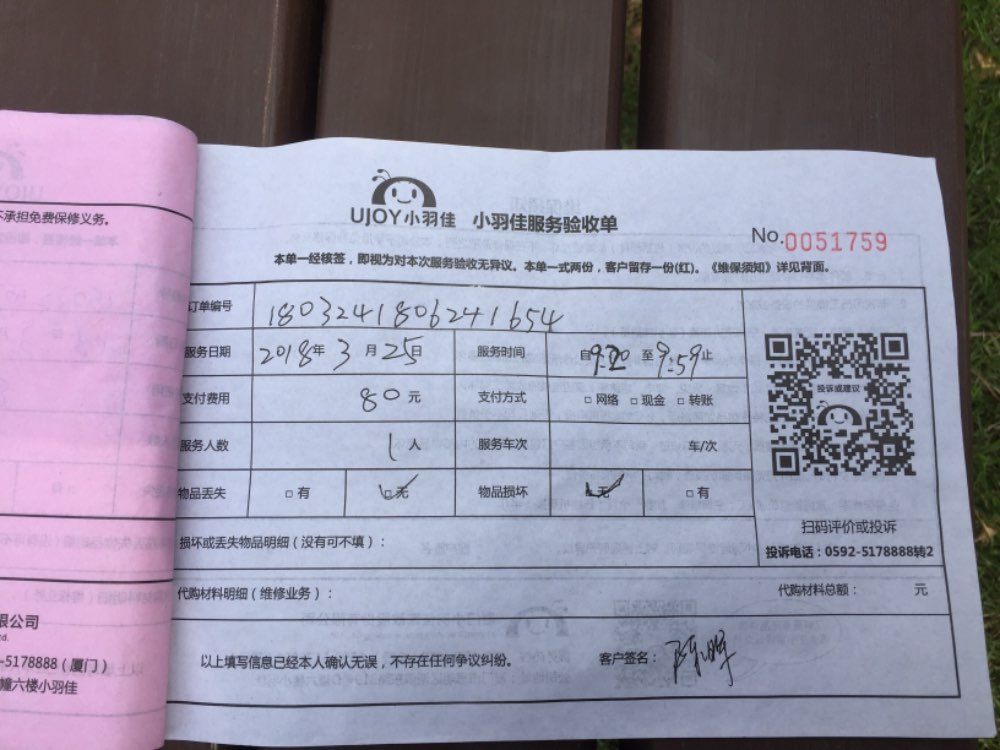 不承担免费保修义务。
UJOY小羽佳 小羽佳服务验收单
No.0051759
本单一经核签，即视为对本次服务验收无异议。本单一式两份，客户留存一份(红)。《维保须知》详见背面。
订单编号 1803241806241654
服务日期 2018年3月25日 服务时间 自9:20至9:59止
支付费用 80元 支付方式 □网络 □现金 □转账
服务人数 1人 服务车次 车/次
物品丢失 □有 □无 物品损坏 □无 □有
投诉或建议
扫码评价或投诉
投诉电话：0592-5178888转2
损坏或丢失物品明细（没有可不填）：
代购材料明细（维修业务）： 代购材料总额： 元
以上填写信息已经本人确认无误，不存在任何争议纠纷。 客户签名：
限公司
td.
-5178888（厦门）
幢六楼小羽佳